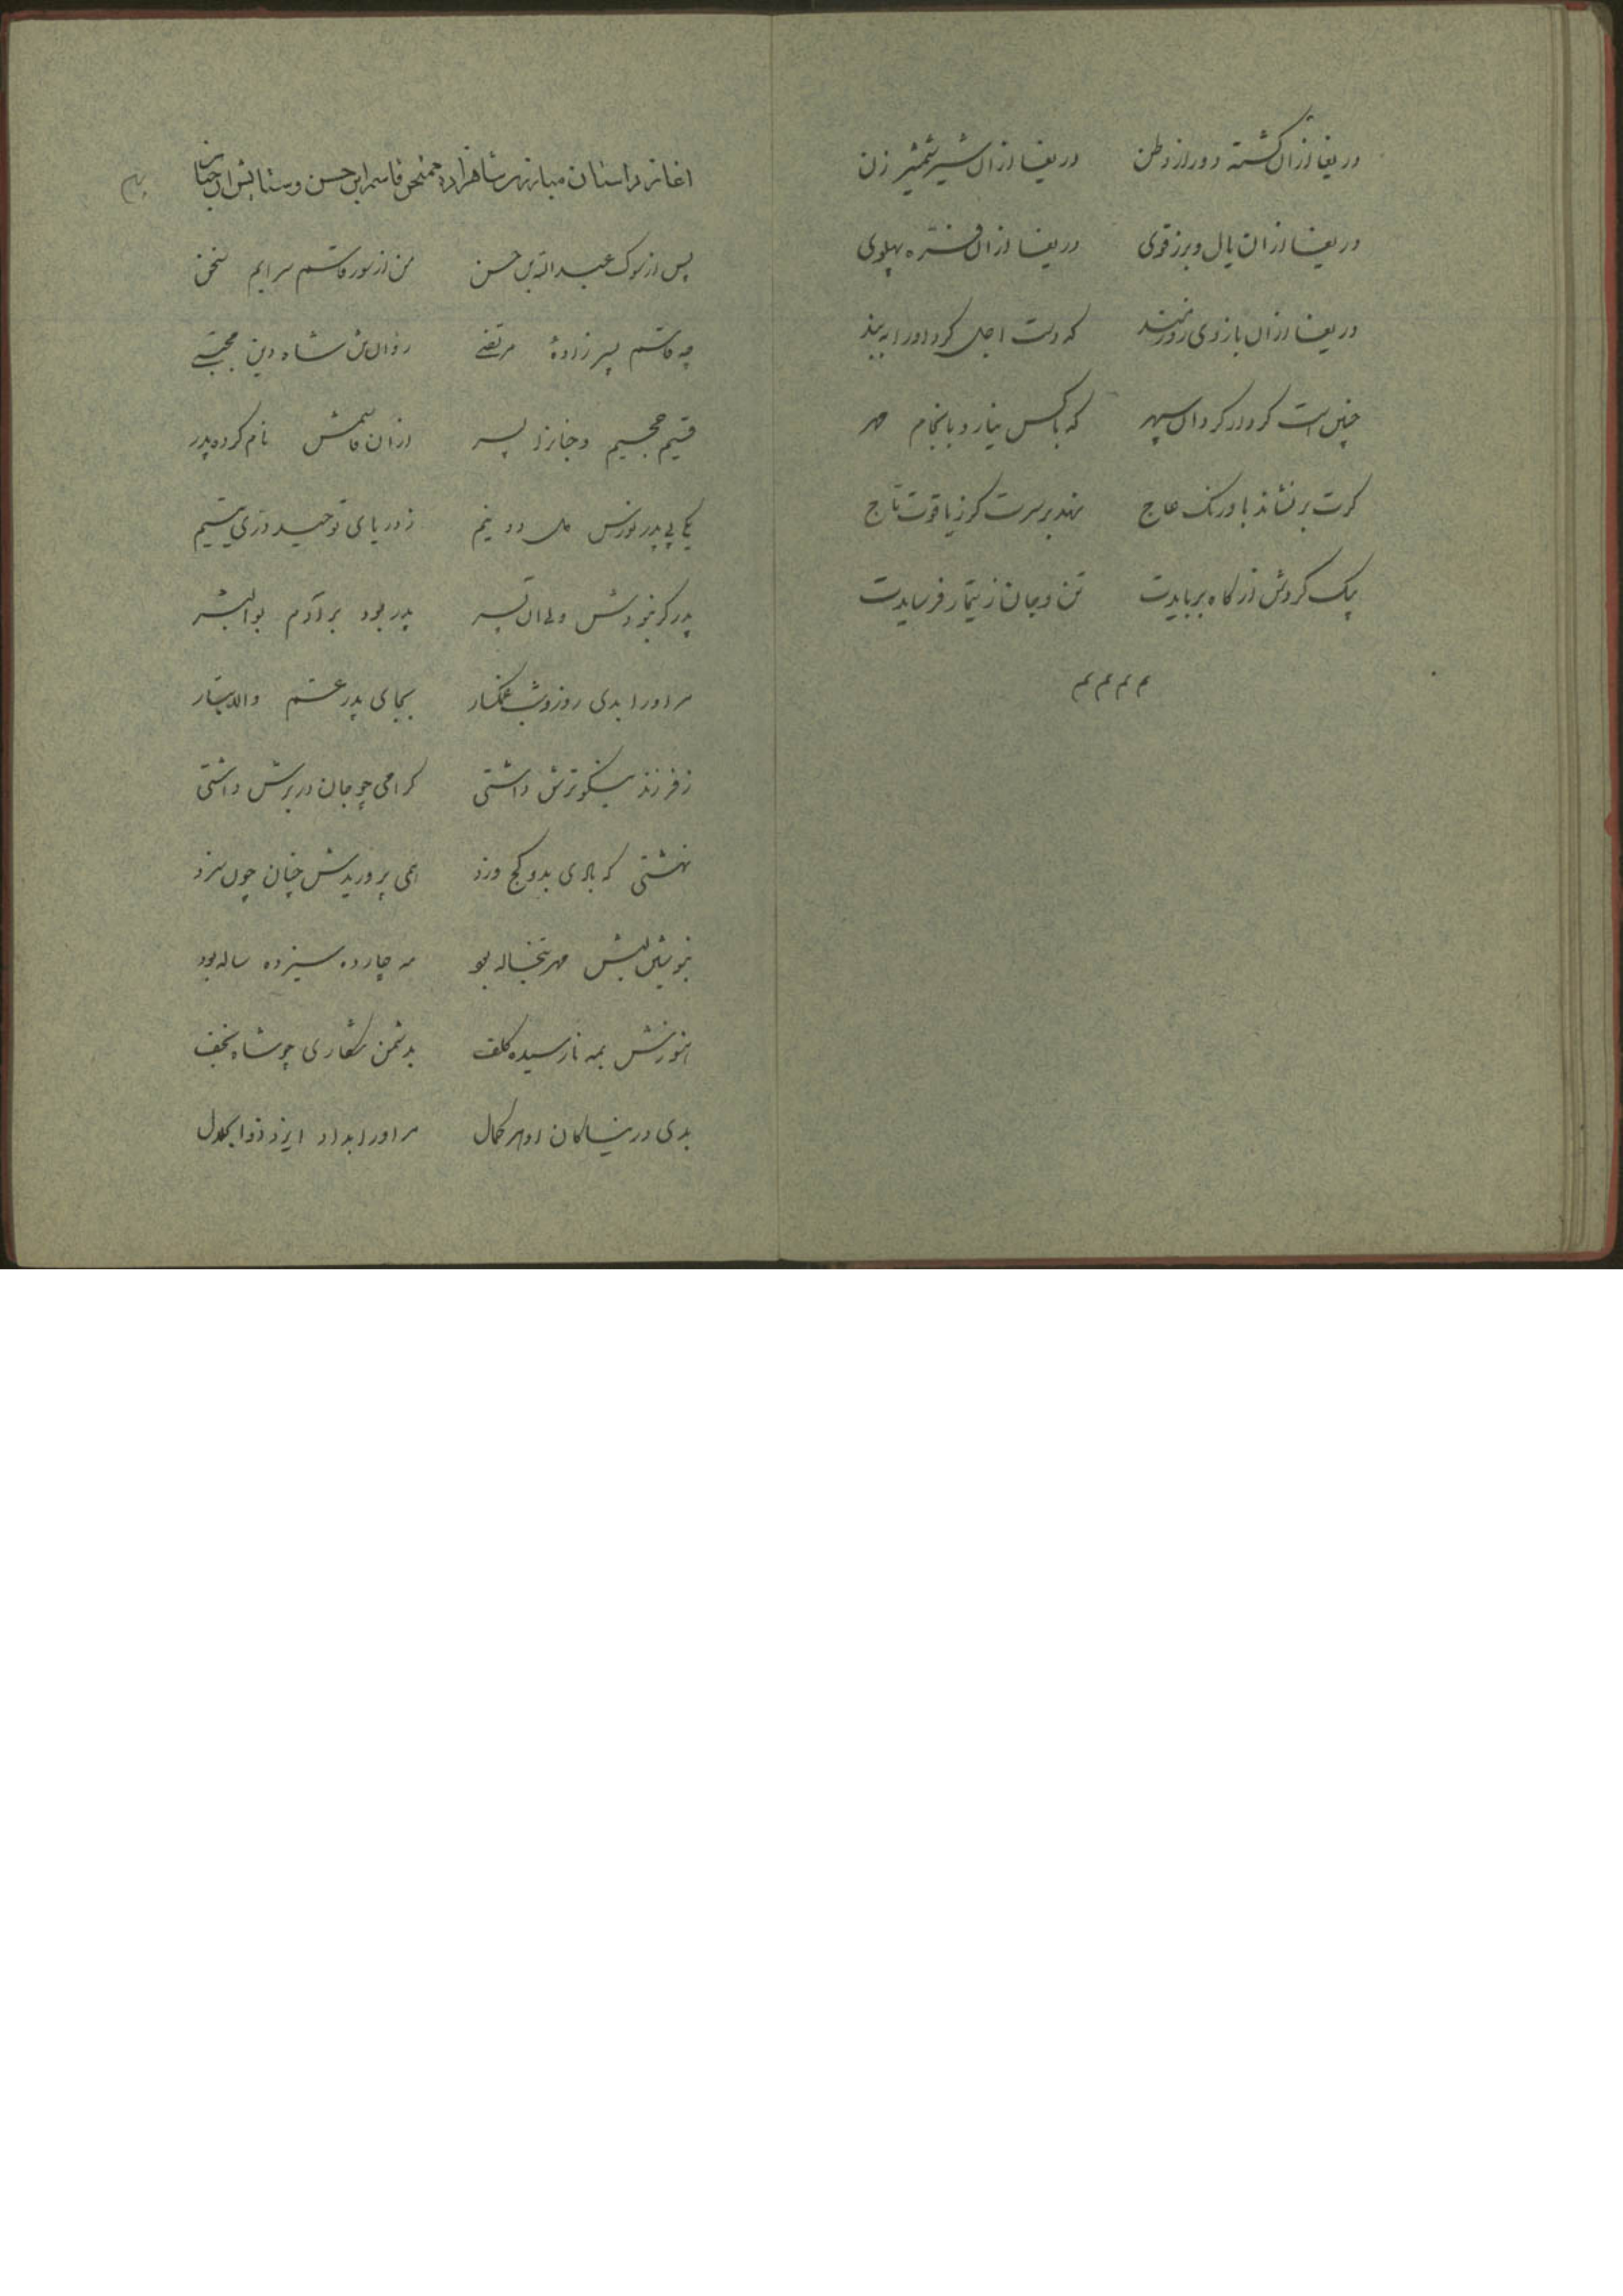 دریغا ازان کشته دور از وطن دریغا ازان شیر شمشیر زن
دریغا ازان یال و برز قوی دریغا ازان فره پهلوی
دریغا ازان بازوی زورمند که دست اجل کرد او را به بند
چنین است کردار کردان سپهر که با کس نیارد بانجام مهر
کرت بر نشاند باورنک عاج نهد بر سرت کر زیاقوت تاج
بیک کردش از کاه بربایدت تن و جان ز تیمار فرسایدت
اغاز داستان مبارزه شاهزاده ممتحن قاسم ابن حسن و ستایش ان جناب
پس از سوک عبداله بن حسن من از سور قاسم سرایم سخن
چه قاسم پسر زادهٔ مرتضی روان تن شاه دین مجتبی
قسیم جحیم و جنانرا پسر ازان قاسمش نام کرده پدر
یکی بی پدر نورس دل دو نیم ز دریای توحید دری یتیم
پدر کر نبودش ولی ان پسر پدر بود بر آدم بوالبشر
مر او را بدی روز و شب غمکسار بجای پدر عم والاتبار
ز فرزند نیکوترش داشتی کرامی چو جان در برش داشتی
نهشتی که بادی بدو کج وزد همی پروریدش چنان چون سزد
مه چارده سیزده ساله بود
هنوزش بمه نارسیده کلف بدشمن شکاری چو شاه نجف
بدی در نیاکان او هر کمال مر او را بداد ایزد ذوالجلال